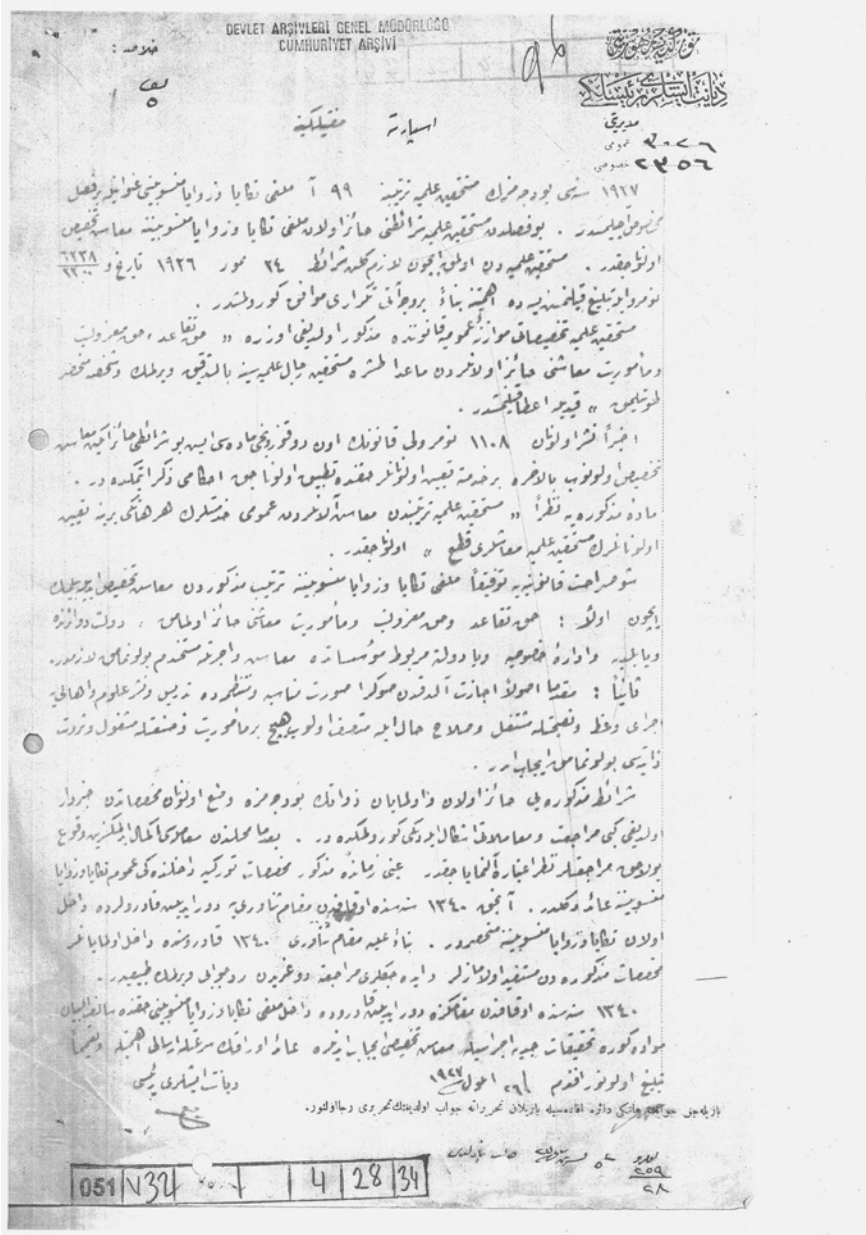 DEVLET ARŞİVLERİ GENEL MÜDÜRLÜĞÜ
CUMHURİYET ARŞİVİ
خلاصه :
تورکیه جمهوریتی
دیانت ایشلری رئیسلکی
مدیریتی
عمومی
خصوصی ٢٣٥٦
اسپارته مفتیلکینه
١٩٢٧ سنه‌سی بودجه‌مزك مستحقین علمیه ترتیبنه ٩٩ آ ملغی تكایا و زوایا منسوبینی عنوانیله بر فصل
مخصوص آچیلمشدر . بو فصلدن مستحقین علمیه شرائطنی حائز اولان ملغی تكایا و زوایا منسوبیننه معاش تخصیص
اولنه‌جقدر . مستحقین علمیه‌دن اولمق ایچون لازم كلن شرائط ٢٤ تموز ١٩٢٦ تاریخ و
نومرولو تبلیغ قیلنمش ایسه‌ده اهمیتنه بناءً بروجه آتی تكراری موافق كورولمشدر .
مستحقین علمیه تخصیصاتی موازنهٔ عمومیه قانوننده مذكور اولدیغی اوزره « حق تقاعد ، حق معزولیت
و مأموریت معاشنی حائز اولانلردن ماعدا طشره مستحقین رجال علمیه‌سنه بالتدقیق ویرلمك و شخصه منحصر
طوتیلمق » قیدیله اعطا قیلنمشدر .
اخیراً نشر اولنان ١١٠٨ نومرولی قانونك اون دوقوزنجی ماده‌سی ایسه بو شرائطی حائز ایكن معاش
تخصیص اولونوب بالآخره بر خدمته تعیین اولونانلر حقنده تطبیق اولوناجق احكامی ذكر ایتمكده‌در .
مادهٔ مذكوره‌یه نظراً « مستحقین علمیه ترتیبندن معاش آلانلردن عمومی خدمتلرك هر هانكی برینه تعیین
اولونانلرك مستحقین علمیه معاشلری قطع » اولونه‌جقدر .
شو صراحت قانونیه‌یه توفیقاً ملغی تكایا و زوایا منسوبیننه ترتیب مذكوردن معاش تخصیص ایدیلمك
ایچون اولاً : حق تقاعد و حق معزولیت و مأموریت معاشنی حائز اولمامق ، دولت دوائرنده
ویا بلدیه و ادارهٔ خصوصیه ویا دولته مربوط مؤسساتده معاش و اجرتله مستخدم بولونمامق لازمدر.
ثانیاً : مقدما اصولاً اجازت آلدقدن صوكرا صورت مناسبه و منتظمه‌ده تدریس و نشر علوم و اهالی‌یه
اجرای وعظ و نصیحتله مشتغل و صلاح حال ایله متصف اولوب هیچ بر مأموریت و صنعتله مشغول و ثروت
ذاتیه‌سی بولونمامق ایجاب ایدر .
شرائط مذكوره‌یی حائز اولان و اولمایان ذواتك بودجه‌مزه وضع اولنان مخصصاتدن خبردار
اولدیغی كبی مراجعت و معاملاتی اشكال ایلدكی كورولمكده‌در . بعدما محلندن معاملهٔ اكمال ایدلمكسزین وقوع
بولاجق مراجعتلر نظر اعتباره آلنمایاجقدر عینی زمانده مذكور مخصصات توركیه داخلنده‌كی عموم تكایا و زوایا
منسوبیننه عائد دكلدر . آنجق ١٣٤٠ سنه‌سنده اوقافدن مقام ثناوری‌یه دور ایدیلن قادرولرده داخل
اولان تكایا و زوایا منسوبیننه منحصردر . بناءً علیه مقام ثناوری ١٣٤٠ قادروسنده داخل اولمایانلر
مخصصات مذكوره‌دن مستفید اولامازلر و ایده‌جكلری مراجعته دوغریدن رد جوابی ویرلمك طبیعیدر .
١٣٤٠ سنه‌سنده اوقافدن مقامكزه دور ایدیلن قادروده داخل ملغی تكایا و زوایا منسوبینی حقنده سالف‌البیان
مواده كوره تحقیقات جدیه اجراسیله معاش تخصیصی ایجاب ایدنلره عائد اوراقك سرعتله ارسالی اهمیتله و تعمیماً
تبلیغ اولونور افندم ٢٦ ایلول ١٩٢٧
دیانت ایشلری رئیسی
یازیله‌جق جوابلرده هانكی دائره افاده‌سیله یازیلان تحریراته جواب اولدیغنك تحریری رجا اولنور.
٢٥٩
٢٨
051 V32 4 28 34